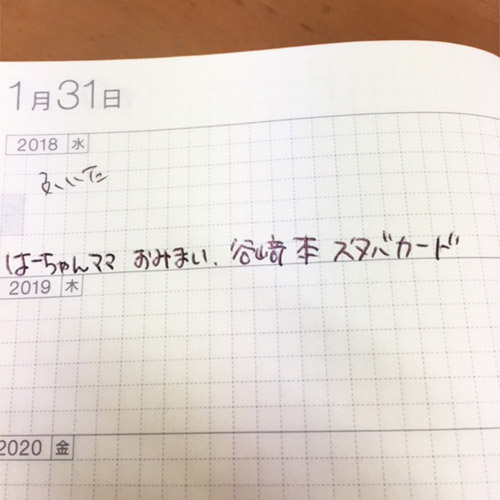 1月31日
2018 水
はーちゃんママ おみまい、谷崎本 スタバカード
2019 木
2020 金